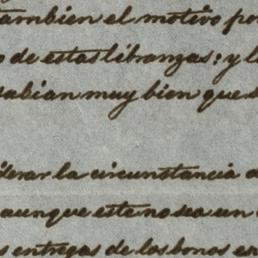 tambien el motivo po
o de estas libranzas: y l
sabian muy bien que
derar la circunstancia
aunque este no sea un
s entregas de los bonos er